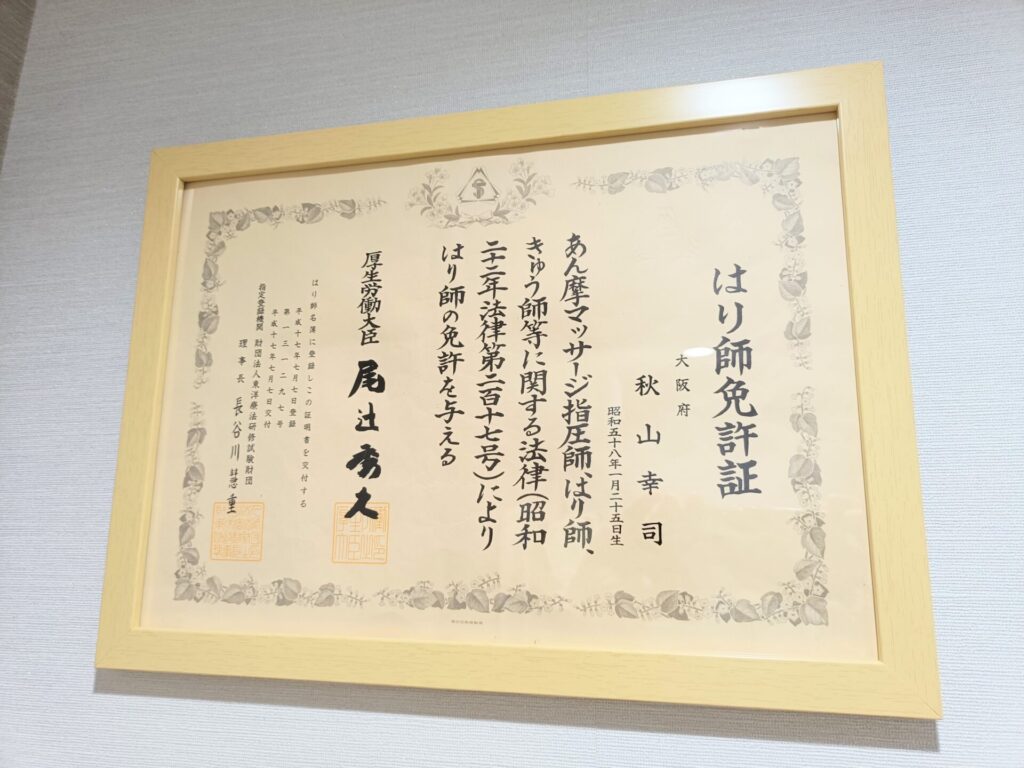 はり師免許証
大阪府
秋山幸司
昭和五十八年一月二十五日生
あん摩マッサージ指圧師、はり師、
きゅう師等に関する法律(昭和
二十二年法律第二百十七号)により
はり師の免許を与える
厚生労働大臣 尾辻秀久
はり師名簿に登録しこの証明書を交付する
平成十七年七月七日登録
第一三一二九七号
平成十七年七月七日交付
指定登録機関 財団法人東洋療法研修試験財団
理事長 長谷川慧重